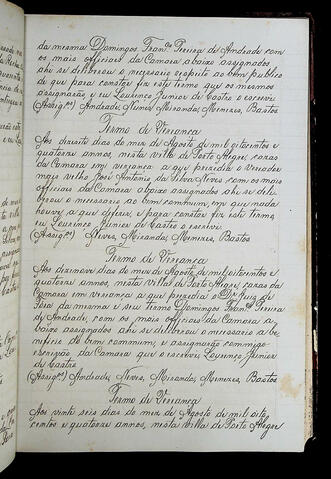 da mesma Domingos Fran.co Pereira de Andrade com
os mais officiaes da Camara abaixo assignados
ahi se deliberou o necessario a respeito ao bem publico
de que para constar fiz este termo que os mesmos
assignarão e eu Lourenço Junior de Castro o escrevi
(Assig.os) Andrade, Nunes, Miranda, Menezes, Bastos
Termo de Vereança
Aos dezoito dias do mez de Agosto de mil oitocentos e
quatorze annos, nesta villa de Porto Alegre, cazas
da Camara em vereança a que prezedio o Vereador
mais velho José Antonio da Silva Neves com os mais
officiaes da Camara abaixo assignados ahi se deli-
berou o necessario ao bem commum, em que nada
houve a que deferir, e para constar fiz este termo
eu Lourenço Junior de Castro o escrevi
(Assig.os) Neves, Miranda, Menezes, Bastos
Termo de Vereança
Aos dezenove dias do mez de Agosto de mil oitocentos e
quatorze annos, nesta villa de Porto Alegre, cazas da
Camara em vereança a que prezedio o D.r Juiz de
Fóra da mesma e seu termo Domingos Fran.co Pereira
de Andrade, com os mais officiaes da Camara a-
baixo assignados ahi se deliberou o necessario a be-
neficio do bem commum, e assignarão commigo
escrivão da Camara que o escrevi Lourenço Junior
de Castro
(Assig.os) Andrade, Neves, Miranda, Menezes, Bastos
Termo de Vereança
Aos vinte seis dias do mez de Agosto de mil oito
centos e quatorze annos, nesta villa de Porto Alegre